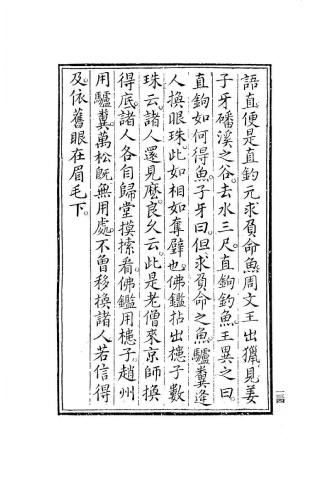 語直。便是直釣元求負命魚。周文王出獵。見姜
子牙磻溪之谷。去水三尺。直鉤釣魚。王異之曰。
直鉤如何得魚。子牙曰。但求負命之魚。驢糞逢
人換眼珠。此如相如奪璧也。佛鑑拈出槵子數
珠云。諸人還見麽。良久云。此是老僧來京師換
得底。諸人各自歸堂摸索看。佛鑑用槵子。趙州
用驢糞。萬松旣無用處。不曾移換諸人。若信得
及。依舊眼在眉毛下。
一三四